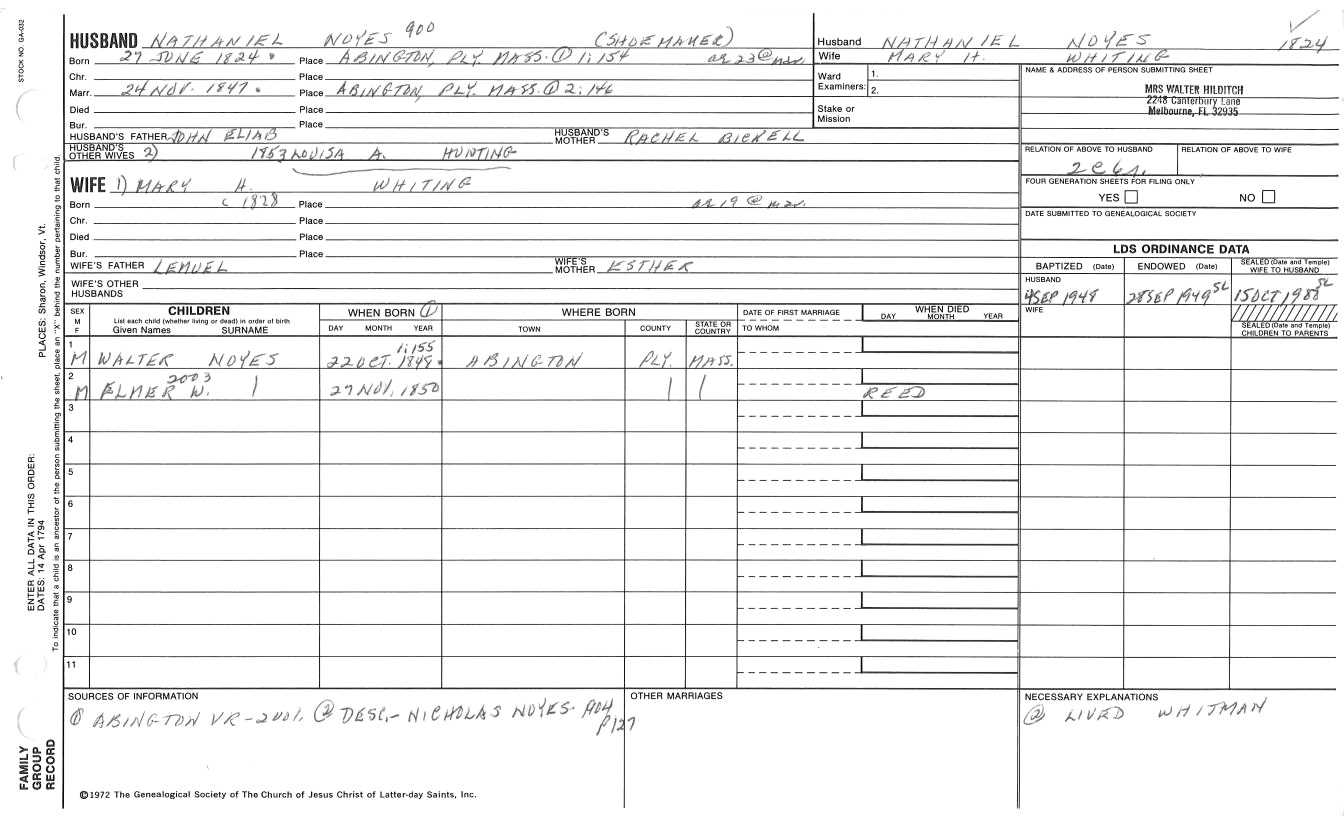 STOCK NO. GA-032
HUSBAND NATHANIEL NOYES 900 (SHOEMAKER)
Born 27 JUNE 1824. Place ABINGTON, PLY. MASS. ① 1:154 ae 23 @ mar.
Chr. Place
Marr. 24 NOV. 1847. Place ABINGTON, PLY. MASS. ① 2:146
Died Place
Bur. Place
HUSBAND'S FATHER JOHN ELIAB HUSBAND'S MOTHER RACHEL BICKELL
HUSBAND'S OTHER WIVES 2) 1853 LOUISA A. HUNTING
WIFE 1) MARY H. WHITING
Born c 1828 Place ae 19 @ mar.
Chr. Place
Died Place
Bur. Place
WIFE'S FATHER LEMUEL WIFE'S MOTHER ESTHER
WIFE'S OTHER HUSBANDS
Husband NATHANIEL NOYES 1824
Wife MARY H. WHITING
Ward Examiners: 1.
2.
Stake or Mission
NAME & ADDRESS OF PERSON SUBMITTING SHEET
MRS WALTER HILDITCH
2248 Canterbury Lane
Melbourne, FL 32935
RELATION OF ABOVE TO HUSBAND RELATION OF ABOVE TO WIFE
2C6r.
FOUR GENERATION SHEETS FOR FILING ONLY
YES NO
DATE SUBMITTED TO GENEALOGICAL SOCIETY
LDS ORDINANCE DATA
BAPTIZED (Date) ENDOWED (Date) SEALED (Date and Temple) WIFE TO HUSBAND
HUSBAND
SEP 1948 28 SEP 1949 SL 15 OCT 1988 SL
WIFE
SEALED (Date and Temple) CHILDREN TO PARENTS
SEX M F CHILDREN WHEN BORN ① WHERE BORN DATE OF FIRST MARRIAGE WHEN DIED
List each child (whether living or dead) in order of birth
Given Names SURNAME DAY MONTH YEAR TOWN COUNTY STATE OR COUNTRY TO WHOM DAY MONTH YEAR
1 M WALTER NOYES 22 OCT. 1848. 1:155 ABINGTON PLY. MASS.
2 M ELMER W. 2003 27 NOV. 1850 REED
3
4
5
6
7
8
9
10
11
SOURCES OF INFORMATION
① ABINGTON VR - 2 vol. ② DESC. - NICHOLAS NOYES - A04
P127
OTHER MARRIAGES
NECESSARY EXPLANATIONS
② LIVED WHITMAN
©1972 The Genealogical Society of The Church of Jesus Christ of Latter-day Saints, Inc.
FAMILY GROUP RECORD
ENTER ALL DATA IN THIS ORDER:
DATES: 14 Apr 1794
PLACES: Sharon, Windsor, Vt.
To indicate that a child is an ancestor of the person submitting the sheet, place an "X" behind the number pertaining to that child.